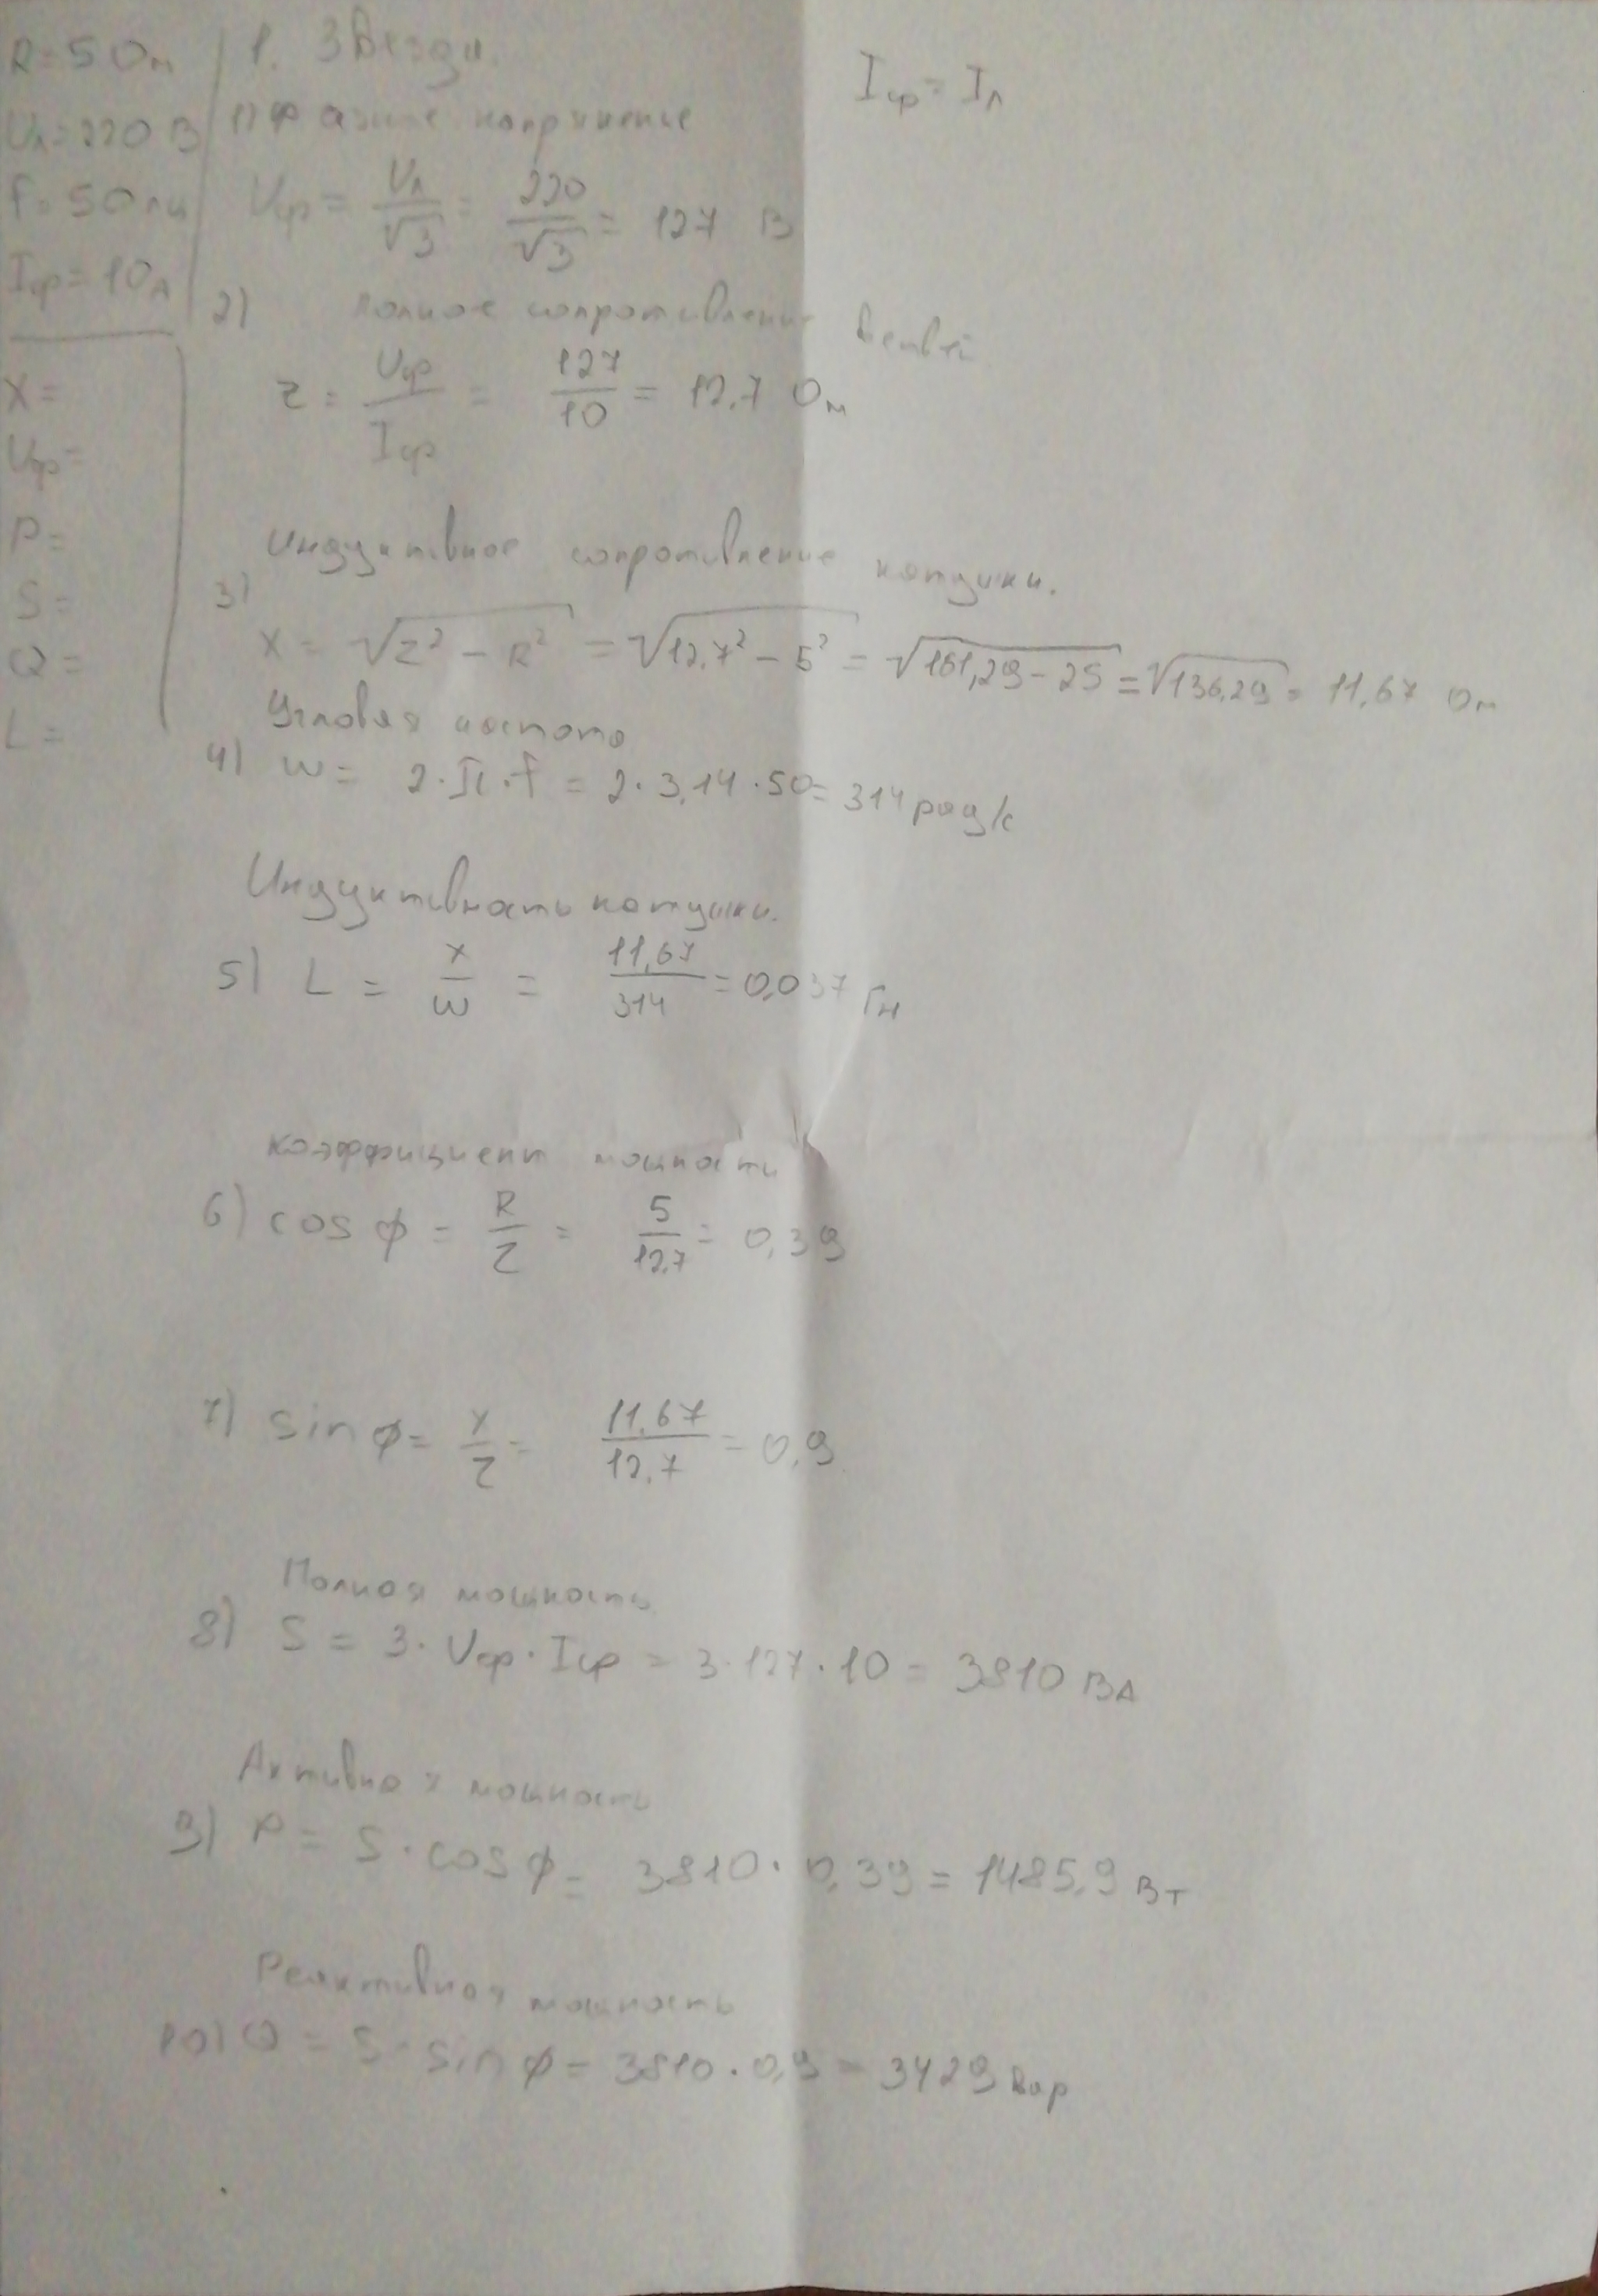 R = 5 Ом
Uл = 220 В
f = 50 гц
Iф = 10 А
X =
Uф =
P =
S =
Q =
L =
1. Звезда.
Iф = Iл
1) Фазное напряжение
Uф = Uл/√3 = 220/√3 = 127 В
2) полное сопротивление ветвей
z = Uф/Iф = 127/10 = 12,7 Ом
Индуктивное сопротивление катушки.
3) X = √(Z² - R²) = √(12,7² - 5²) = √(161,29 - 25) = √136,29 = 11,67 Ом
Угловая частота
4) w = 2·π·f = 2·3,14·50 = 314 рад/с
Индуктивность катушки.
5) L = x/w = 11,67/314 = 0,037 Гн
Коэффициент мощности
6) cos φ = R/Z = 5/12,7 = 0,39
7) sin φ = X/Z = 11,67/12,7 = 0,9
Полная мощность
8) S = 3·Uф·Iф = 3·127·10 = 3810 ВА
Активная мощность
9) P = S·cos φ = 3810·0,39 = 1485,9 Вт
Реактивная мощность
10) Q = S·sin φ = 3810·0,9 = 3429 вар